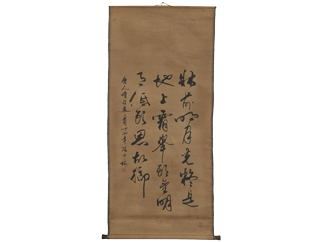 牀前明月光疑是
地上霜舉頭望明
月低頭思故鄉
唐人詩